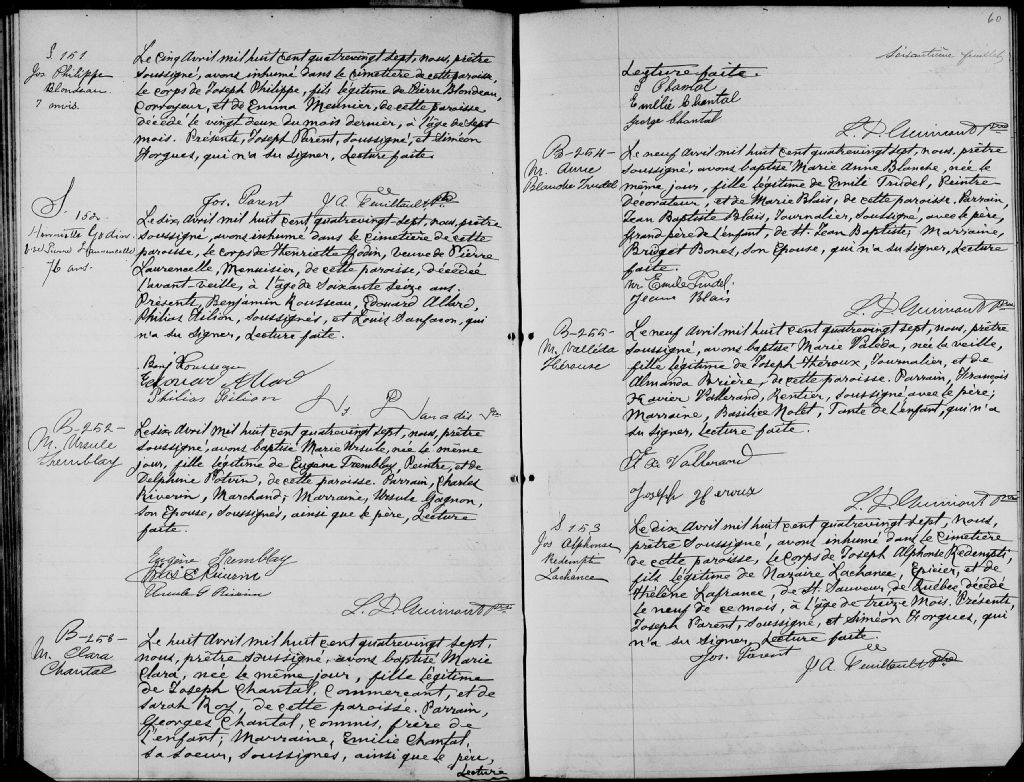 S. 151
Jos Philippe
Blondeau
7 mois.
Le cinq Avril mil huit cent quatrevingt sept, nous, prêtre
soussigné, avons inhumé dans le cimetière de cette paroisse,
le corps de Joseph Philippe, fils légitime de Pierre Blondeau,
Corroyeur, et de Emma Meunier, de cette paroisse
décédé le vingt deux du mois dernier, à l'âge de sept
mois. Présents, Joseph Parent, soussigné, et Siméon
Forgues, qui n'a su signer, Lecture faite.
Jos. Parent J A Feuiltault Ptre
S. 152
Henriette Godin
76 ans.
Le dix Avril mil huit cent quatrevingt sept, nous, prêtre
soussigné, avons inhumé dans le cimetière de cette
paroisse, le corps de Henriette Godin, veuve de Pierre
Laurencelle, Menuisier, de cette paroisse, décédée
l'avant-veille, à l'âge de soixante seize ans.
Présents, Benjamin Rousseau, Edouard Allard,
Philias Filion, soussignés, et Louis Sanfacon, qui
n'a su signer, Lecture faite.
Benj Rousseau
Edouar Allard
Philias Filion
B-252-
M. Ursule
Tremblay
Le dix Avril mil huit cent quatrevingt sept, nous, prêtre
soussigné, avons baptisé Marie Ursule, née le même
jour, fille légitime de Eugène Tremblay, Peintre, et de
Delphine Potvin, de cette paroisse. Parrain, Charles
Riverin, Marchand; Marraine, Ursule Gagnon,
son Epouse, soussignés, ainsi que le père, Lecture
faite
Eugène Tremblay
Ursule G Riverin
L. D. Guimont Ptre
B-253-
M. Clara
Chantal
Le huit Avril mil huit cent quatrevingt sept,
nous, prêtre soussigné, avons baptisé Marie
Clara, née le même jour, fille légitime
de Joseph Chantal, Commercant, et de
Sarah Roy, de cette paroisse. Parrain,
Georges Chantal, commis, frère de
l'enfant; Marraine, Emilie Chantal,
sa soeur, soussignés, ainsi que le père,
Lecture
60
Soixantième feuillet
Lecture faite.
J Chantal
Emilie Chantal
George Chantal
L. D. Guimont Ptre
B-254-
M. Anne
Blanche Trudel
Le neuf Avril mil huit cent quatrevingt sept, nous, prêtre
soussigné, avons baptisé Marie Anne Blanche, née le
même jour, fille légitime de Emile Trudel, Peintre
Decorateur, et de Marie Blais, de cette paroisse. Parrain,
Jean Baptiste Blais, Journalier, soussigné, avec le père,
Grand père de l'enfant, de St. Jean Baptiste; Marraine,
Bridget Bones, son Epouse, qui n'a su signer, Lecture
faite.
Mr Emile Trudel
Jean Blais
L. D. Guimont Ptre
B-255-
M. Valléda
Héreuse
Le neuf Avril mil huit cent quatrevingt sept, nous, prêtre
soussigné, avons baptisé Marie Valéda, née la veille,
fille légitime de Joseph Théroux, Journalier, et de
Almanda Brière, de cette paroisse. Parrain, François
Xavier Vallerand, Rentier, soussigné avec le père;
Marraine, Basilice Nolet, Tante de l'enfant, qui n'a
su signer, Lecture faite.
F X Vallerand
Joseph Heroux
L. D. Guimont Ptre
S 153
Jos Alphonse
Redempte
Lachance
Le dix Avril mil huit cent quatrevingt sept, nous,
prêtre soussigné, avons inhumé dans le cimetière
de cette paroisse, le corps de Joseph Alphonse Redempte,
fils légitime de Nazaire Lachance, Epicier, et de
Hélène Lafrance, de St. Sauveur, de Québec, décédé
le neuf de ce mois, à l'âge de treize mois. Présents,
Joseph Parent, soussigné, et Siméon Forgues, qui
n'a su signer, Lecture faite.
Jos. Parent
J A Feuiltault Ptre